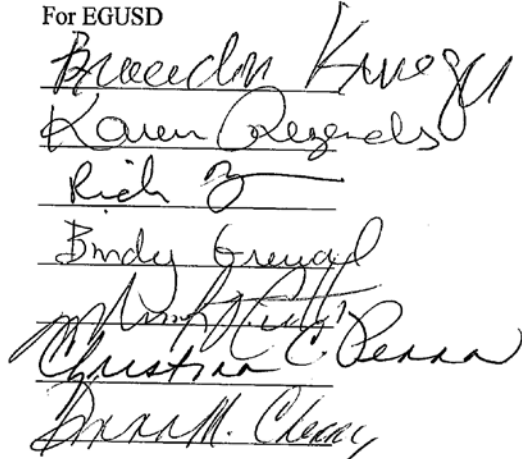 For EGUSD
Brandon Krueger
Karen Rezendes
Rich
Bindy Grewal
Christina C. Penna
Donna M. Cherry